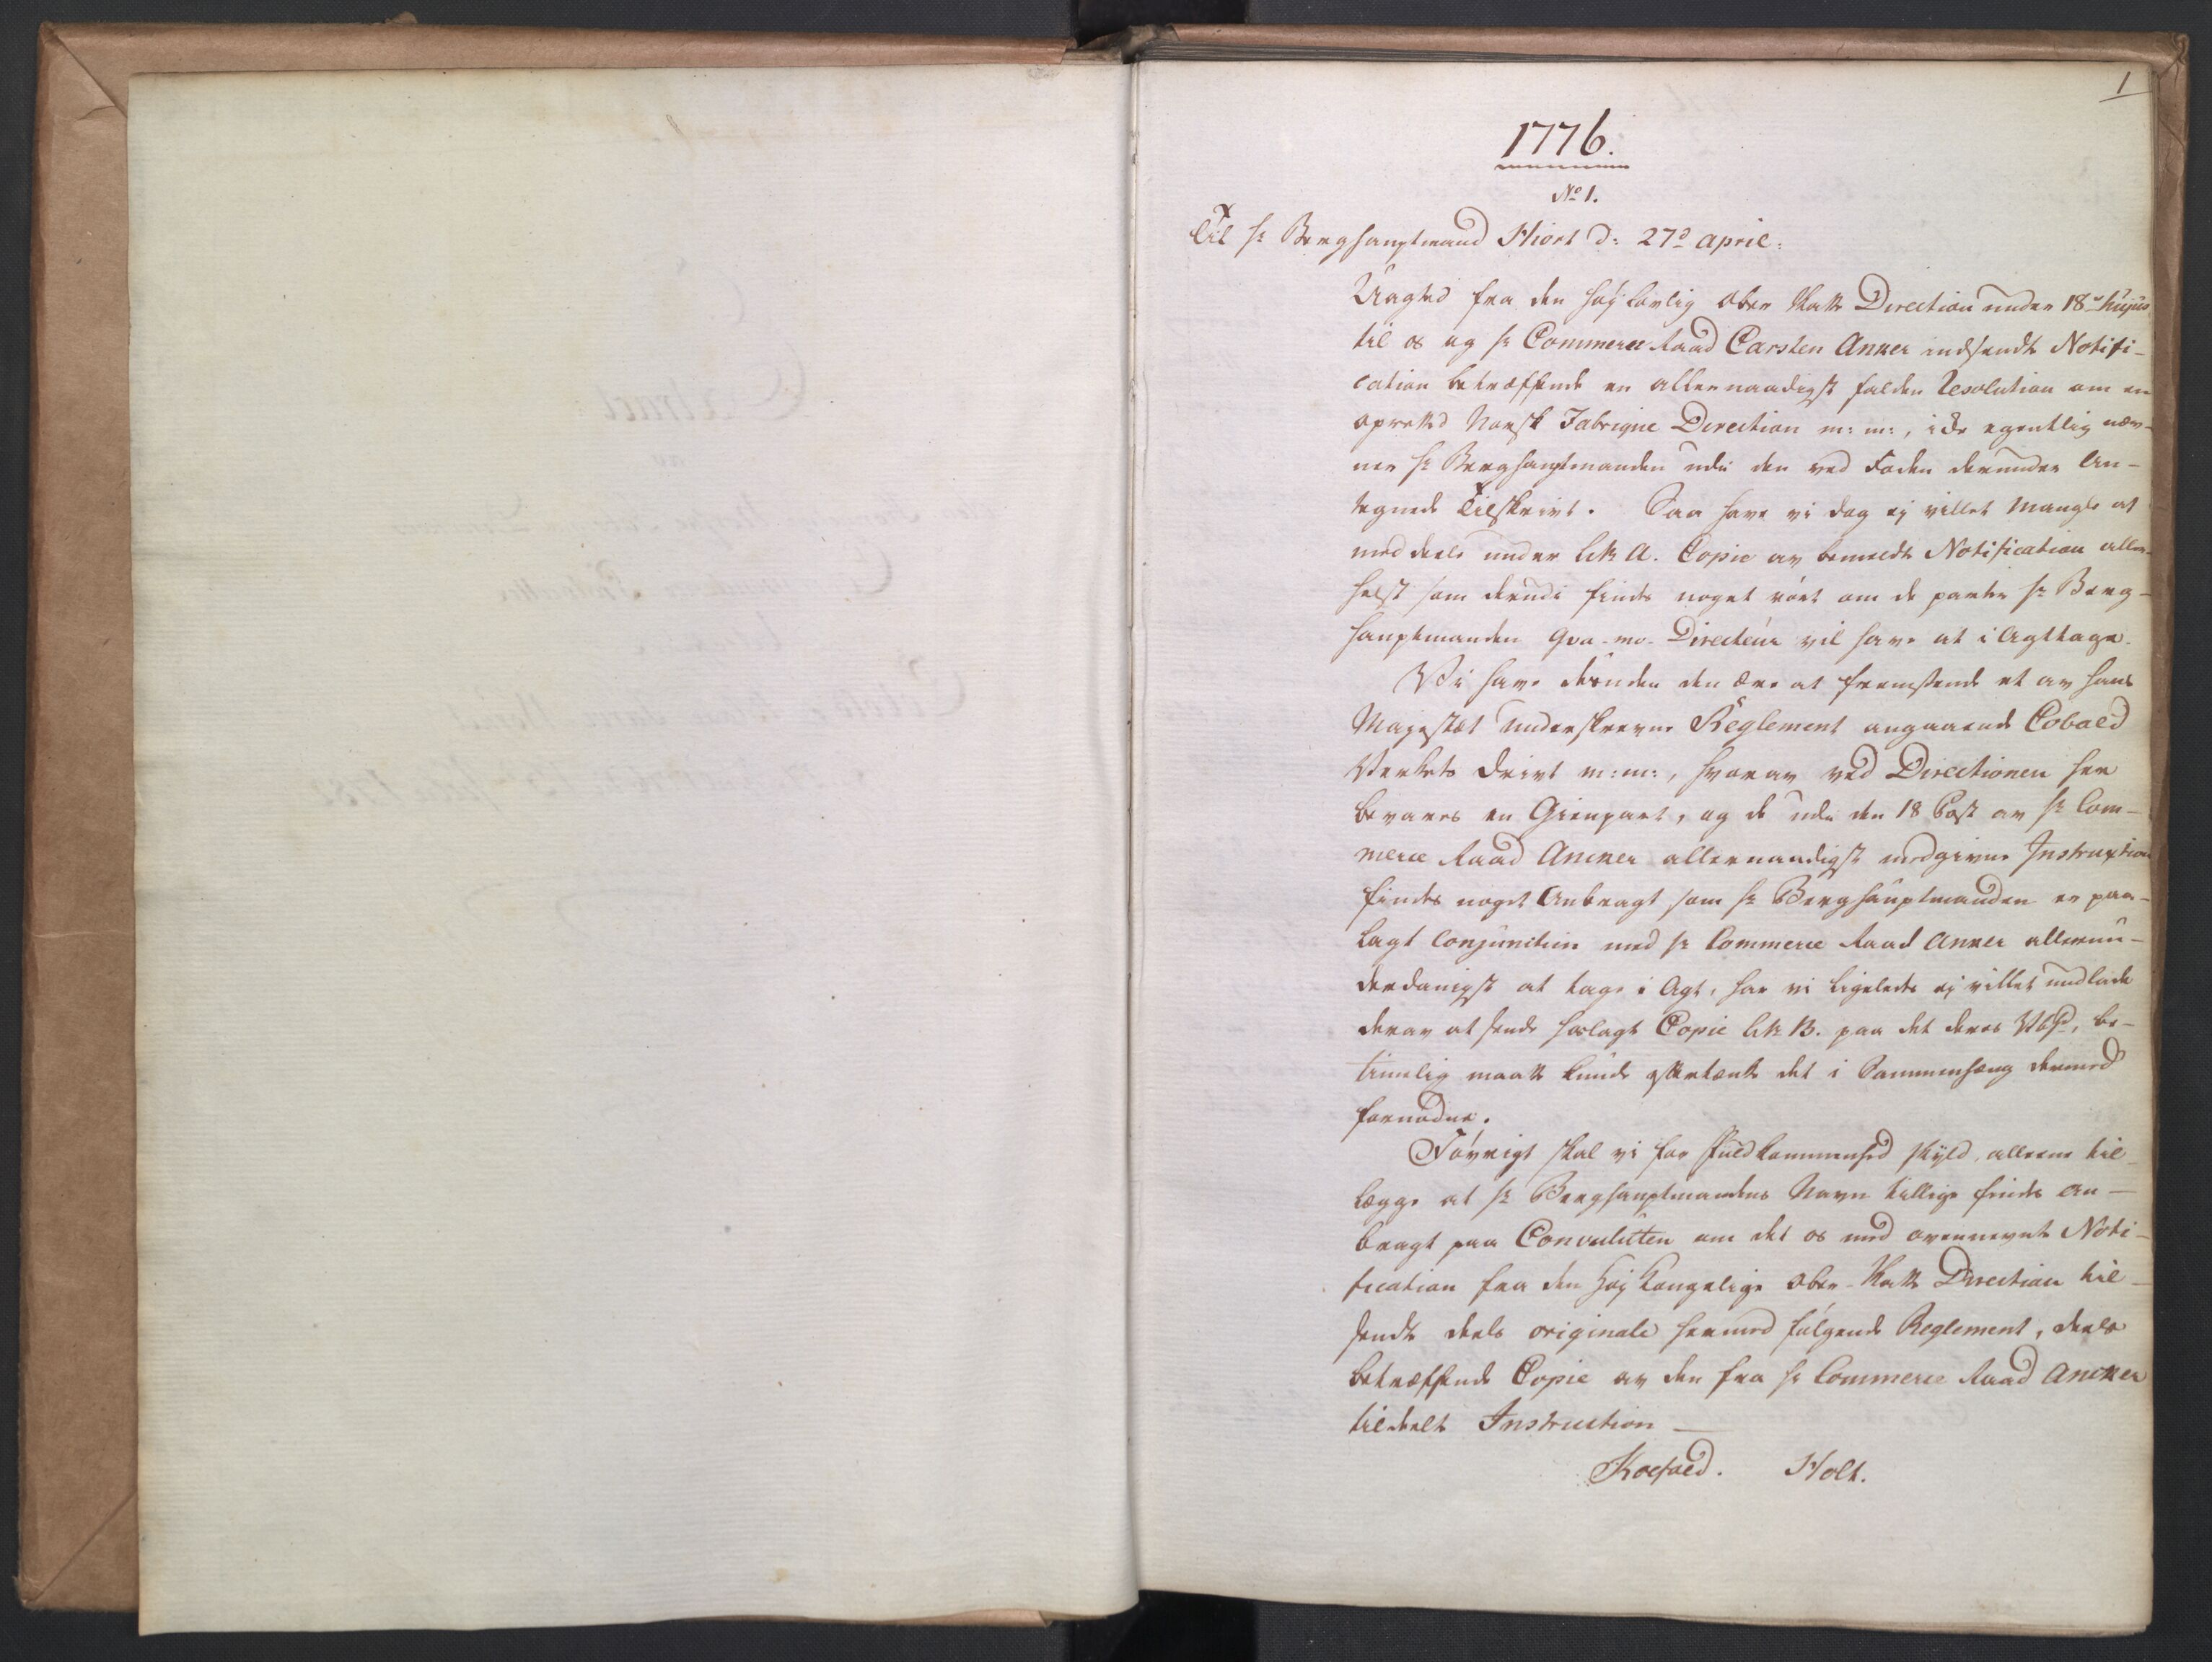 1
1776.
No 1.
Til Hr Berghauptmand Hiort d: 27de April:
Uagted fra den høj Lovlig Ober Skatte Direction under 18de hujus
til os og Hr Commerce Raad Carsten Anker indsendte Notifi-
cation betræffende en allernaadigst falden Resolution om en
opretted Norsk Fabrique Direction m: m:, icke egentlig næv-
ner Hr Berghauptmanden udi den ved Foden derunder An-
tegnede Tilskrivt. Saa have vi dog ej villet Mangle at
meddeele under Litr A. Copie av bemeldte Notification aller-
helst som derudi findes noget rørt om de parter Hr Berg-
hauptmanden qva-mo- Directeur vil have at i Agttage.
Vi have desuden den Ære at fremsende et av Hans
Majestæt Underskreven Reglement angaaende Cobold
Verkets Drivt m:m:, hvorav ved Directionen her
bevares en Gienpart, og da udi den 18 Post av Hr Com-
merce Raad Ancker allernaadigst medgivne Instruxtion
findes noget Anbragt som Hr Berghauptmanden er paa-
lagt Conjunctim med Hr Commerce Raad Anker allerun-
derdanigst at tage i Agt, har vi ligeledes ej villet undlade
derav at sende hoslagt Copie Litr B. paa det deres be-
timelig maatte kunde eftertænke det i Sammenhæng dermed
fornødne.
Iøvrigt skal vi for Fuldkommenhed skyld, alleene til-
lægge at Hr Berghauptmandens Navn tillige findes an-
bragt paa Convulutten om det os med ovennevnte Noti-
fication fra den Høj Kongelige Ober-Skatte Direction til-
sendte deels originale hermed følgende Reglement, deels
betræffende Copie av den fra Hr Commerce Raad Ancker
tildeelte Instruction —
Koefoed. Holt.